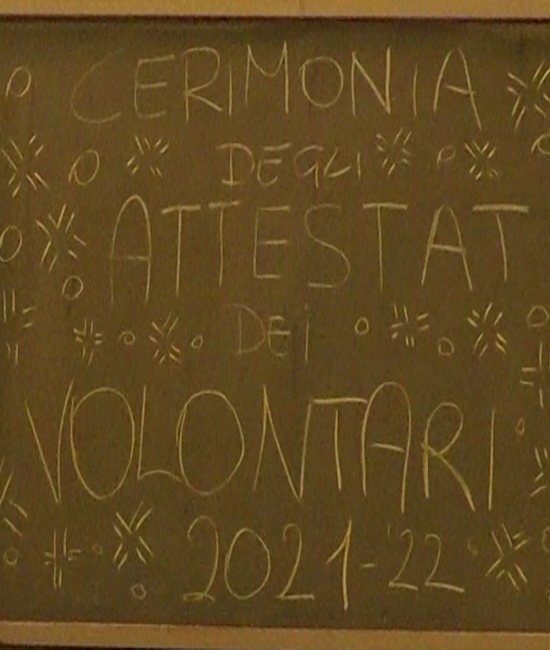 CERIMONIA
DEGLI
ATTESTAT
DEi
VOLONTARI
2021-22